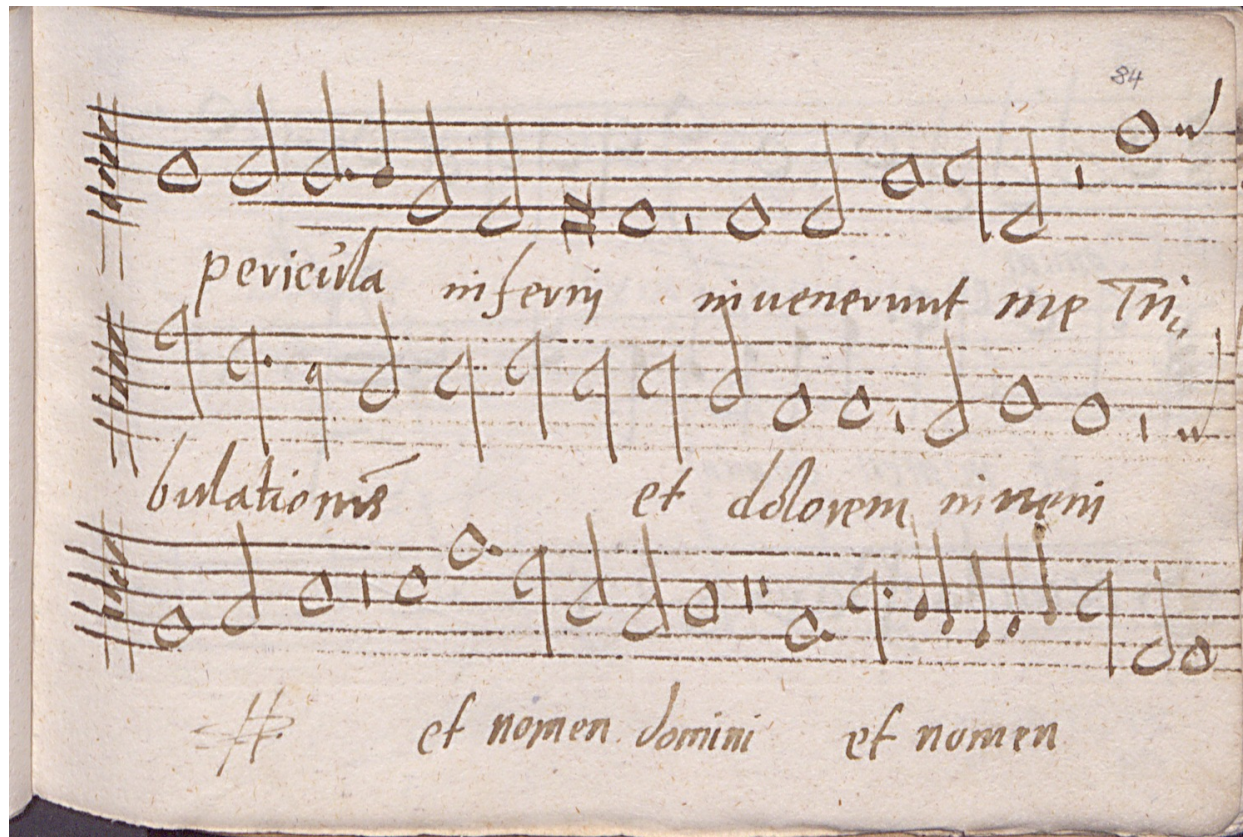 84
pericula inferni invenerunt me Tri„
bulationis et dolorem inveni
et nomen domini et nomen